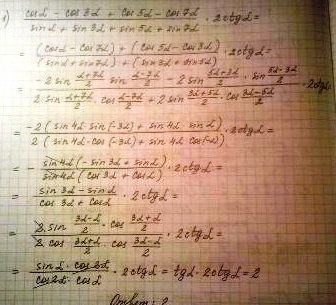 1) (cosα - cos3α + cos5α - cos7α)/(sinα + sin3α + sin5α + sin7α) · 2ctgα =
= ((cosα - cos7α) + (cos5α - cos3α))/((sinα + sin7α) + (sin3α + sin5α)) · 2ctgα =
= (-2 sin (α+7α)/2 sin (α-7α)/2 - 2 sin (5α+3α)/2 · sin (5α-3α)/2)/(2 sin (α+7α)/2 cos (α-7α)/2 + 2 sin (3α+5α)/2 · cos (3α-5α)/2) · 2ctgα
= (-2(sin4α·sin(-3α) + sin4α·sinα))/(2(sin4α·cos(-3α) + sin4α cos(-α))) · 2ctgα =
= (sin4α(-sin3α + sinα))/(sin4α(cos3α + cosα)) · 2ctgα =
= (sin3α - sinα)/(cos3α + cosα) · 2ctgα =
= (2 sin (3α-α)/2 · cos (3α+α)/2)/(2 cos (3α+α)/2 · cos (3α-α)/2) · 2ctgα =
= (sinα · cos2α)/(cos2α · cosα) · 2ctgα = tgα · 2ctgα = 2
Ответ: 2